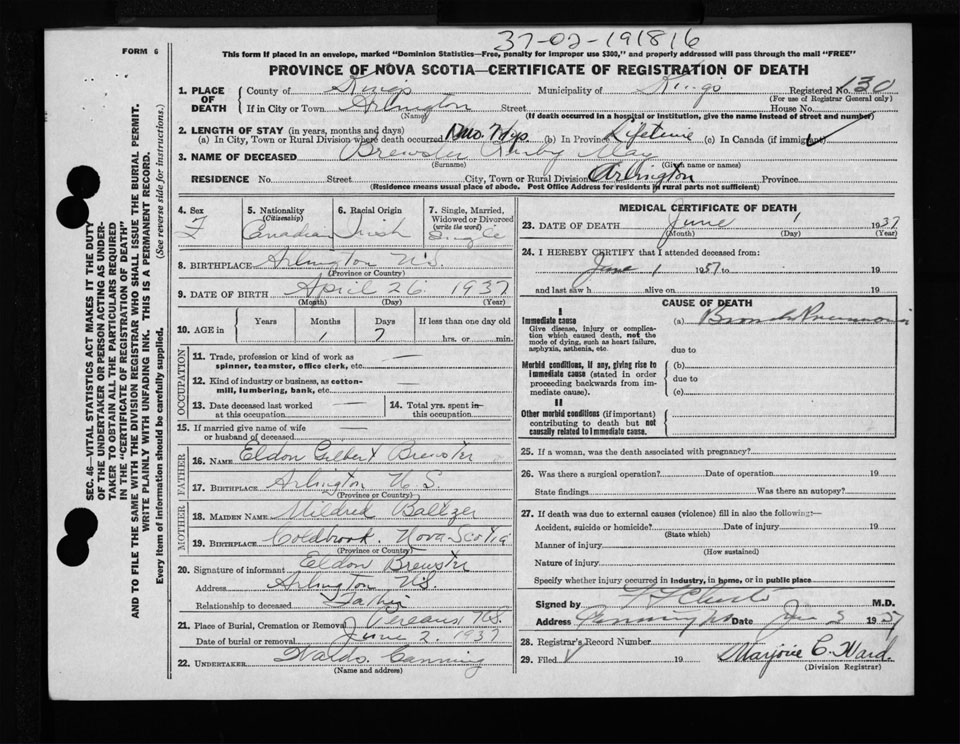 37-02-191816
FORM 6
This form if placed in an envelope, marked "Dominion Statistics—Free, penalty for improper use $300," and properly addressed will pass through the mail "FREE"
PROVINCE OF NOVA SCOTIA—CERTIFICATE OF REGISTRATION OF DEATH
1. PLACE OF DEATH County of Kings Municipality of Kings Registered No. 130
(For use of Registrar General only)
If in City or Town Arlington Street House No.
(Name) (If death occurred in a hospital or institution, give the name instead of street and number)
2. LENGTH OF STAY (in years, months and days)
(a) In City, Town or Rural Division where death occurred 1 mo. 7 dys. (b) In Province Lifetime (c) In Canada (if immigrant)
3. NAME OF DECEASED Brewster May
(Surname) (Given name or names)
RESIDENCE No. Street City, Town or Rural Division Arlington Province
(Residence means usual place of abode. Post Office Address for residents in rural parts not sufficient)
4. Sex F
5. Nationality (Citizenship) Canadian
6. Racial Origin Irish
7. Single, Married, Widowed or Divorced (write the word) Single
8. BIRTHPLACE Arlington N.S.
(Province or Country)
9. DATE OF BIRTH April 26 1937
(Month) (Day) (Year)
10. AGE in Years Months Days If less than one day old
1 7 hrs. or min.
OCCUPATION
11. Trade, profession or kind of work as spinner, teamster, office clerk, etc. —
12. Kind of industry or business, as cotton-mill, lumbering, bank, etc. —
13. Date deceased last worked at this occupation —
14. Total yrs. spent in this occupation
15. If married give name of wife or husband of deceased —
FATHER
16. NAME Eldon Gilbert Brewster
17. BIRTHPLACE Arlington N.S.
(Province or Country)
MOTHER
18. MAIDEN NAME Mildred Baltzer
19. BIRTHPLACE Coldbrook Nova Scotia
(Province or Country)
20. Signature of informant Eldon Brewster
Address Arlington N.S.
Relationship to deceased Father
21. Place of Burial, Cremation or Removal Pereaux N.S.
Date of burial or removal June 2. 1937
22. UNDERTAKER Waldo. Canning
(Name and address)
MEDICAL CERTIFICATE OF DEATH
23. DATE OF DEATH June 1 1937
(Month) (Day) (Year)
24. I HEREBY CERTIFY that I attended deceased from:
June 1 1937 to 19
and last saw h alive on 19
CAUSE OF DEATH
I
Immediate cause (a) Broncho Pneumonia
Give disease, injury or complication which caused death, not the mode of dying, such as heart failure, asphyxia, asthenia, etc.
due to
Morbid conditions, if any, giving rise to immediate cause (stated in order proceeding backwards from immediate cause).
(b)
due to
(c)
II
Other morbid conditions (if important) contributing to death but not causally related to immediate cause.
25. If a woman, was the death associated with pregnancy?
26. Was there a surgical operation? Date of operation 19
State findings Was there an autopsy?
27. If death was due to external causes (violence) fill in also the following:—
Accident, suicide or homicide? Date of injury 19
(State which)
Manner of injury
(How sustained)
Nature of injury
Specify whether injury occurred in Industry, in home, or in public place
Signed by M.D.
Address Canning NS Date June 2 1937
28. Registrar's Record Number
29. Filed 19 Marjorie C. Ward.
(Division Registrar)
SEC. 46—VITAL STATISTICS ACT MAKES IT THE DUTY
OF THE UNDERTAKER OR PERSON ACTING AS UNDERTAKER
TO OBTAIN ALL THE PARTICULARS REQUIRED
IN THE "CERTIFICATE OF REGISTRATION OF DEATH"
AND TO FILE THE SAME WITH THE DIVISION REGISTRAR WHO SHALL ISSUE THE BURIAL PERMIT.
WRITE PLAINLY WITH UNFADING INK. THIS IS A PERMANENT RECORD.
Every item of information should be carefully supplied. (See reverse side for instructions.)